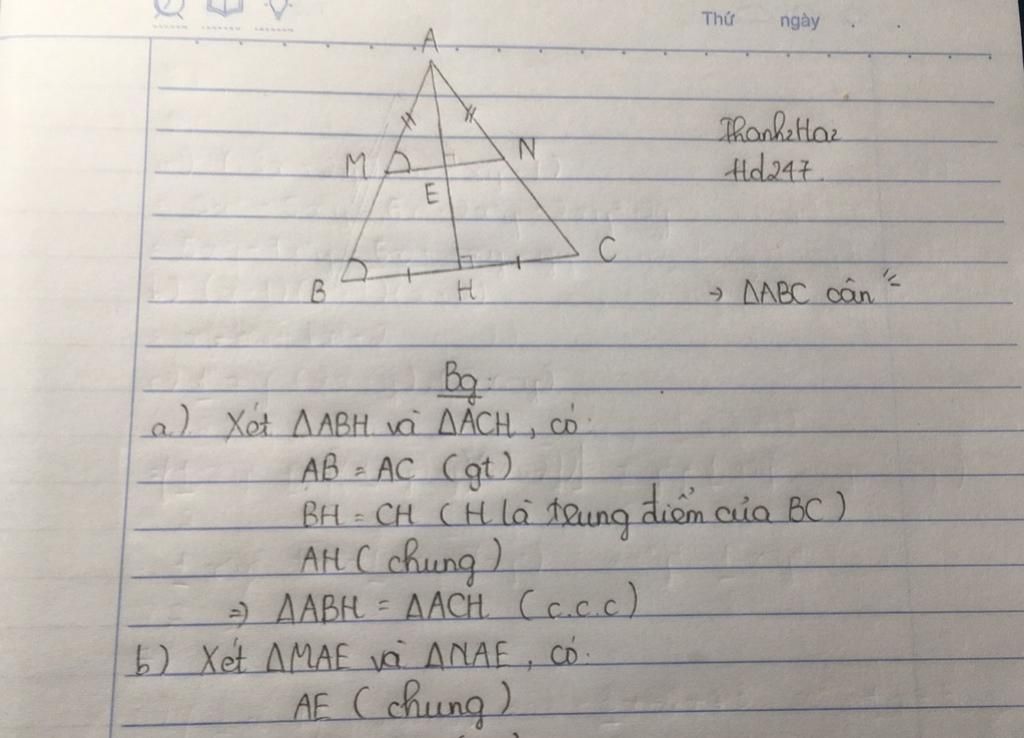 Thứ ngày . .
A
M
N
E
B
H
C
Thanh2Ha2
Hd247.
→ ΔABC cân
Bg:
a.) Xét ΔABH và ΔACH, có:
AB = AC (gt)
BH = CH (H là trung điểm của BC)
AH (chung)
=> ΔABH = ΔACH (c.c.c)
b) Xét ΔMAE và ΔNAE, có:
AE (chung)